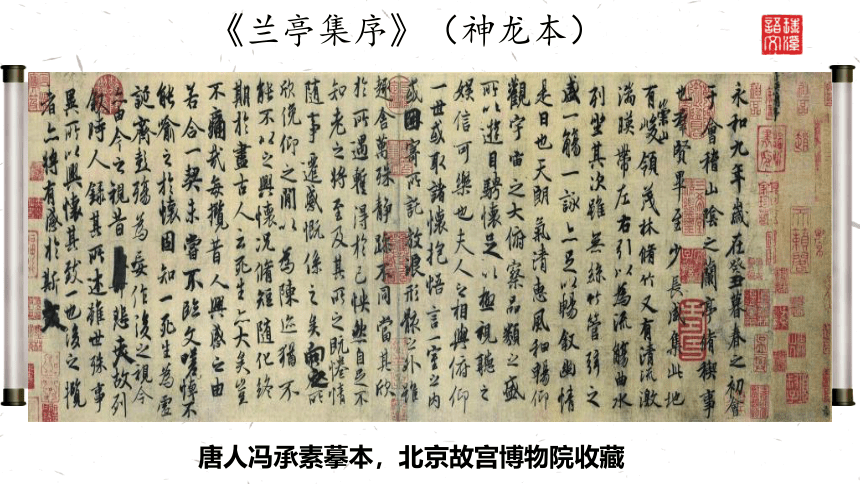 《兰亭集序》（神龙本）
永和九年歲在癸丑暮春之初會
于會稽山陰之蘭亭脩稧事
也羣賢畢至少長咸集此地
有崇山峻領茂林脩竹又有清流激
湍暎帶左右引以為流觴曲水
列坐其次雖無絲竹管弦之
盛一觴一詠亦足以暢敘幽情
是日也天朗氣清惠風和暢仰
觀宇宙之大俯察品類之盛
所以遊目騁懷足以極視聽之
娛信可樂也夫人之相與俯仰
一世或取諸懷抱悟言一室之內
或因寄所託放浪形骸之外雖
趣舍萬殊靜躁不同當其欣
於所遇暫得於己怏然自足不
知老之將至及其所之既惓情
隨事遷感慨係之矣向之所
欣俛仰之閒以為陳迹猶不
能不以之興懷況脩短隨化終
期於盡古人云死生亦大矣豈
不痛哉每攬昔人興感之由
若合一契未嘗不臨文嗟悼不
能喻之於懷固知一死生為虛
誕齊彭殤為妄作後之視今
亦由今之視昔悲夫故列
敘時人錄其所述雖世殊事
異所以興懷其致一也後之攬
者亦將有感於斯文
唐人冯承素摹本，北京故宫博物院收藏